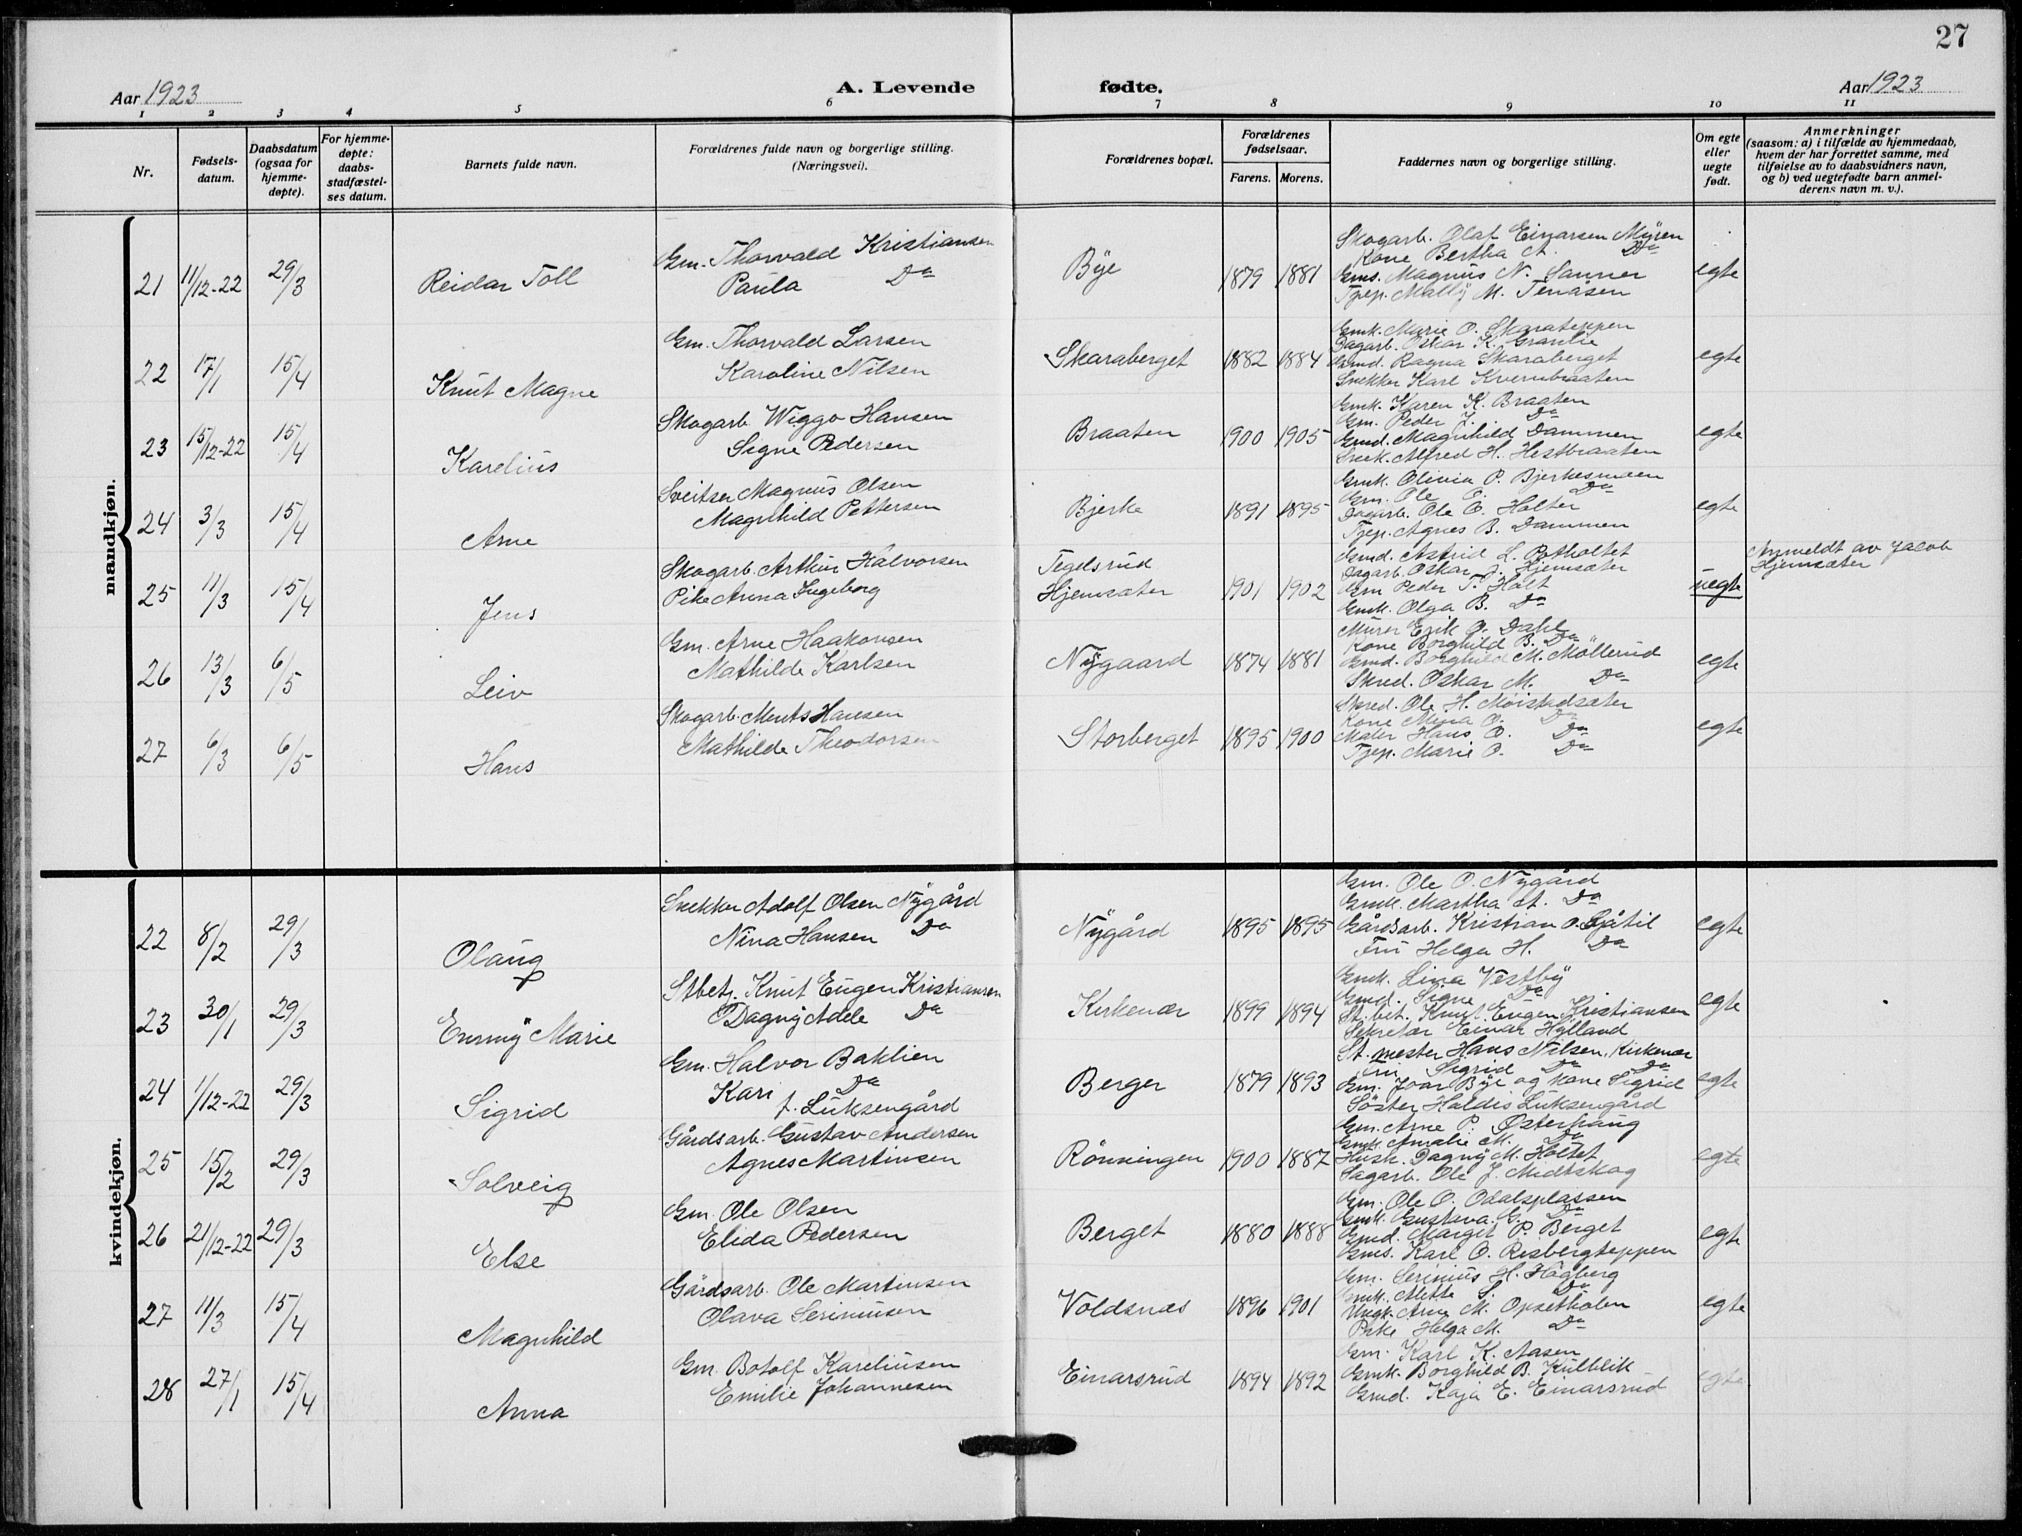 27
Aar 1923
A. Levende fødte.
Aar 1923
1 2 3 4 5 6 7 8 9 10 11
Nr.
Fødsels-
datum.
Daabsdatum
(ogsaa for
hjemme-
døpte).
For hjemme-
døpte:
daabs-
stadfæstel-
ses datum.
Barnets fulde navn.
Forældrenes fulde navn og borgerlige stilling.
(Næringsvei).
Forældrenes bopæl.
Forældrenes
fødselsaar.
Farens. Morens.
Faddernes navn og borgerlige stilling.
Om egte
eller
uegte
født.
Anmerkninger
(saasom: a) i tilfælde av hjemmedaab,
hvem der har forrettet samme, med
tilføielse av to daabsvidners navn,
og b) ved uegtefødte barn anmel-
derens navn m. v.).
mandkjøn.
21 11/12-22 29/3 Reidar Toll
Gm. Thorvald Kristiansen
Paula Do
Bye 1879 1881
Skogarb. Olaf Einarsen Myren
Kone Bertha A. Do
Gms. Magnus N. Sanner
Tjep. Mally M. Tenåsen
egte
22 17/1 15/4 Knut Magne
Gm. Thorvald Larsen
Karoline Nilsen
Skaraberget 1882 1884
Gmk. Marie O. Skarateppen
Dagarb. Oskar K. Granlie
Gmd. Ragna Skaraberget
Snekker Karl Kvernbraaten
egte
23 15/12-22 15/4 Karelius
Skogarb. Wiggo Hansen
Signe Pedersen
Braaten 1900 1905
Gmk. Karen K. Braaten
Gm. Peder J. Do
Gmd. Magnhild Dammen
Snek. Alfred H. Hestbraaten
egte
24 3/3 15/4 Arne
Sveitser Magnus Olsen
Magnhild Pettersen
Bjerke 1891 1895
Gmk. Olivia P. Bjerkesmoen
Gm. Ole E. Do
Dagarb. Ole E. Holter
Tjep. Agnes B. Dammen
egte
25 11/3 15/4 Jens
Skogarb. Arthur Halvorsen
Pike Anna Ingeborg
Tegelsrud
Hjemsæter 1901 1902
Gmd. Astrid L. Potholtet
Dagarb. Oskar J. Hjemsæter
Gm Peder T. Holt
Gmk. Olga B. Do
uegte
Anmeldt av Jacob
Hjemsæter
26 13/3 6/5 Leiv
Gm. Arne Haakonsen
Mathilde Karlsen
Nygaard 1874 1881
Murer Erik O. Dahl
Kone Borghild B. Do
Gmd. Borghild M. Möllerud
Skred. Oskar M. Do
egte
27 6/3 6/5 Hans
Skogarb. Ments Hansen
Mathilde Theodorsen
Storberget 1895 1900
Skred. Ole H. Moistadsæter
Kone Mina O. Do
Maler Hans O. Do
Tjep. Marie O. Do
egte
kvindekjøn.
22 8/2 29/3 Olaug
Snekker Adolf Olsen Nygård
Nina Hansen Do
Nygård 1895 1895
Gm. Ole O. Nygård
Gmk. Martha A. Do
Gårdsarb. Kristian O. Gjåtil
Fru Helga H. Do
egte
23 30/1 29/3 Emmy Marie
Stbetj. Knut Eugen Kristiansen
Dagny Adele Do
Kirkenær 1899 1894
Gmk. Lina Vestby
Gmd. Signe Do
St. bet. Knut Eugen Kristiansen
Sekretær Einar Hylland
egte
24 1/12-22 29/3 Sigrid
Gm. Halvor Baklien
Kari Do
f. Luksengård
Berger 1879 1893
St. mester Hans Nilsen, Kirkenær
Fru Sigrid Do Do
Gm. Joar Bye og kone Sigrid
Söster Haldis Luksengård
egte
25 15/2 29/3 Solveig
Gårdsarb. Gustav Andersen
Agnes Martinsen
Rönningen 1900 1887
Gm. Arne P. Østerhaug
Gmk. Amalie M. Do
Husk. Dagny M. Holtet
Sagarb. Ole J. Midtskog
egte
26 21/12-22 29/3 Else
Gm. Ole Olsen
Elida Pedersen
Berget 1880 1888
Gm. Ole O. Odalsplassen
Gmk. Gustava G. Do
Gmd. Margit P. Berget
Gms. Karl O. Risbergteppen
egte
27 11/3 15/4 Magnhild
Gårdsarb. Ole Martinsen
Olava Serinusen
Voldsnæs 1896 1901
Gm. Serinius H. Högberg
Gmk. Alette S. Do
Ungk. Arne M. Opsetholen
Pike Helga M. Do
egte
28 27/1 15/4 Anna
Gm. Botolf Kareliusen
Emilie Johannesen
Einarsrud 1894 1892
Gm. Karl K. Aasen
Gmk. Borghild B. Kulblik
Gmd. Kaja E. Einarsrud
egte